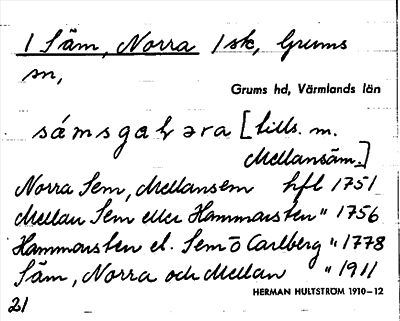 1 Säm, Norra 1 sk, Grums
sn,
Grums hd, Värmlands län
sámsgaḷɜra [tills. m.
Mellansäm.]
Norra Sem, Mellansem hfl 1751
Mellan Sem eller Hammarsten " 1756
Hammarsten el. Sem ō Carlberg " 1778
Säm, Norra och Mellan " 1911
HERMAN HULTSTRÖM 1910–12
21